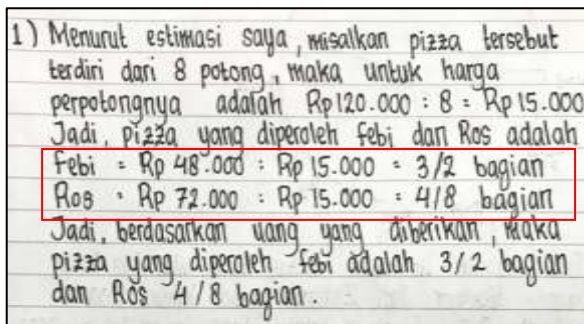 1) Menurut estimasi saya, misalkan pizza tersebut
terdiri dari 8 potong, maka untuk harga
perpotongnya adalah Rp 120.000 : 8 = Rp 15.000
Jadi, pizza yang diperoleh febi dan Ros adalah
Febi = Rp 48.000 : Rp 15.000 = 3/2 bagian
Ros = Rp 72.000 : Rp 15.000 = 4/8 bagian
Jadi, berdasarkan uang yang diberikan, maka
pizza yang diperoleh febi adalah 3/2 bagian
dan Ros 4/8 bagian.